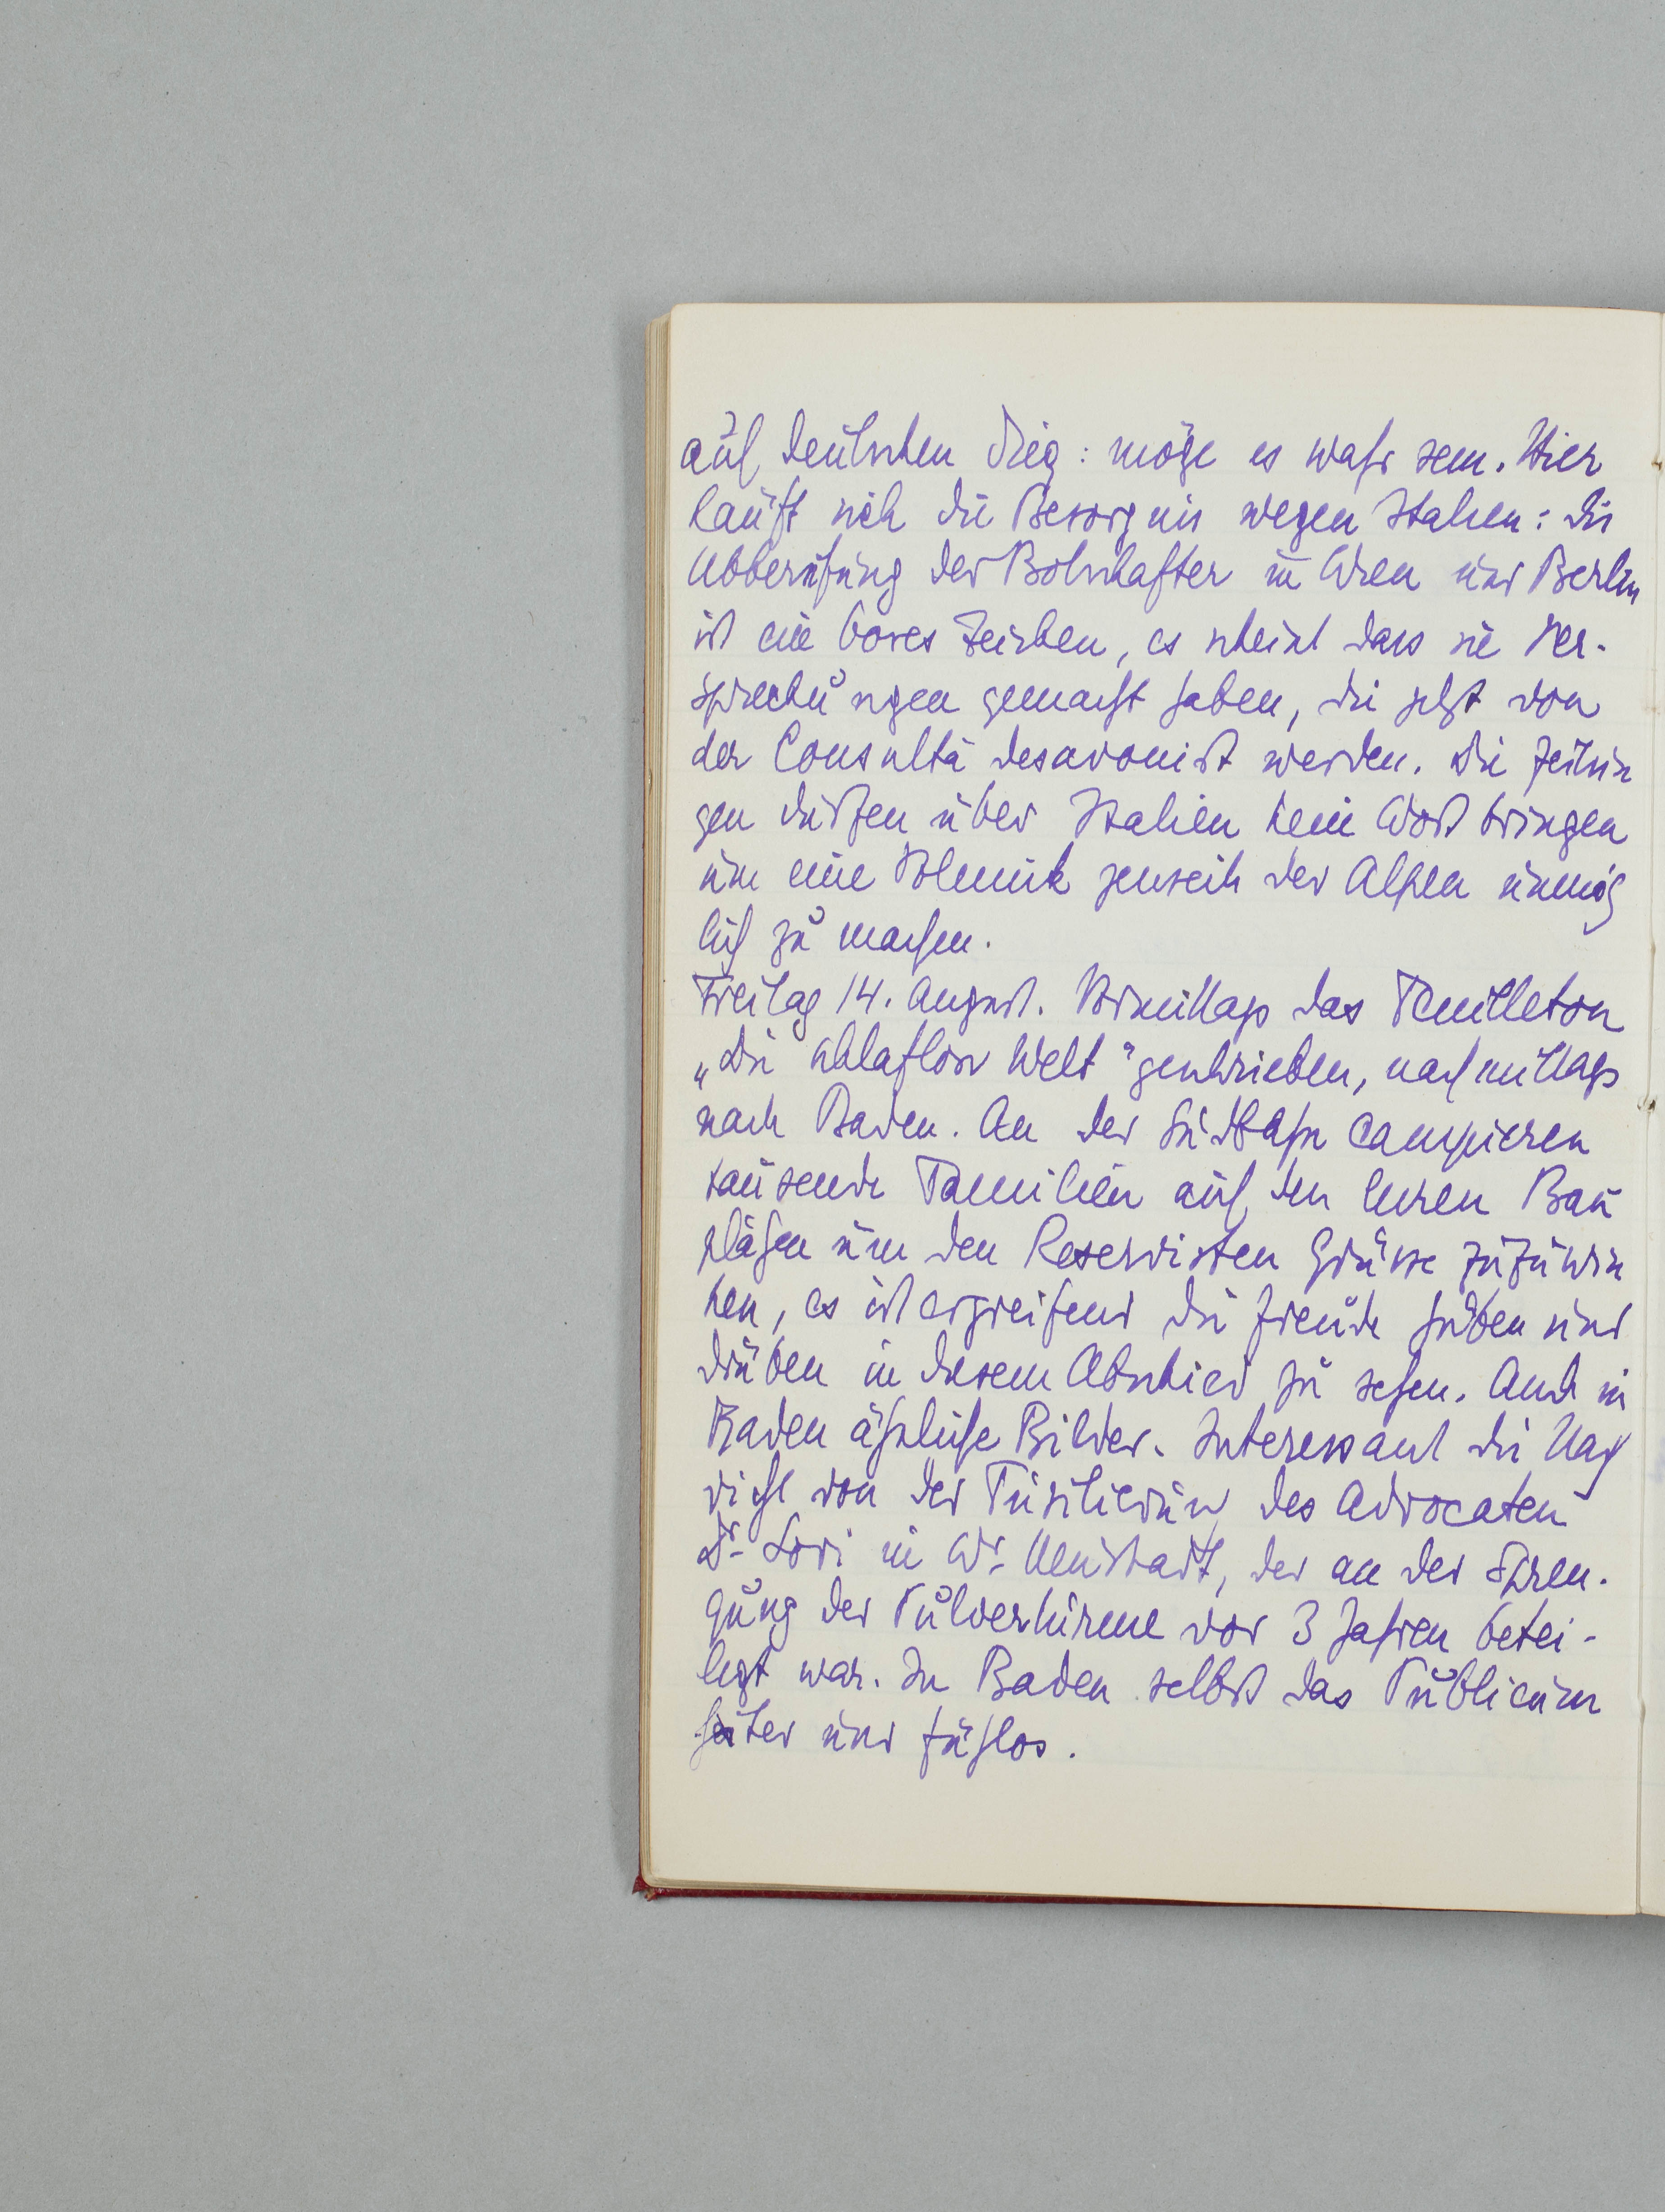 auf deutschen Sieg: möge es wahr sein. Hier
häuft sich die Besorgnis wegen Italien: die
Abberufung der Botschafter in Wien und Berlin
ist ein böses Zeichen, es scheint dass sie Ver-
sprechungen gemacht haben, die jetzt von
der Consulta desavouirt werden. Die Zeitun
gen dürfen über Italien kein Wort bringen
um eine Polemik jenseits der Alpen unmög
lich zu machen.
Freitag 14. August. Vormittags das Feuilleton
„Die schlaflose Welt“ geschrieben, nachmittags
nach Baden. An der Südbahn campieren
tausende Familien auf den leeren Bau
plätzen um den Reservisten Grüsse zuzuwin
ken, es ist ergreifend die Freude hüben und
drüben in diesem Abschied zu sehen. Auch in
Baden ähnliche Bilder. Interessant die Nach
richt von der Füsilierung des Advocaten
Dr. Lori in Wr. Neustadt, der an der Spren-
gung der Pulvertürme vor 3 Jahren betei-
ligt war. In Baden selbst das Publicum
heiter und